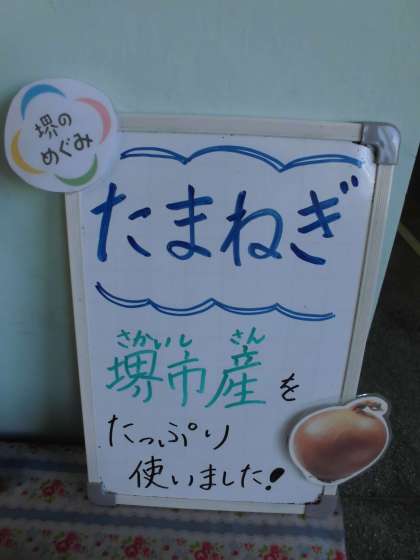 堺の
めぐみ
たまねぎ
さかいし さん
堺市産を
たっぷり
使いました!